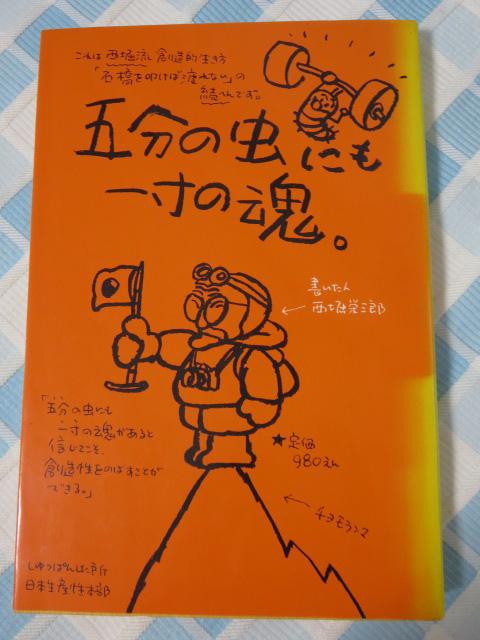 これは西堀流創造的生き方
「石橋を叩けば渡れない」の
続へんです。
五分の虫にも
一寸の魂。
書いたん
西堀栄三郎
「五分の虫にも
一寸の魂があると
信じてこそ、
創造性をのばすことが
できる。」
★定価
980えん
チョモランマ
しゅっぱんは
日本生産性本部